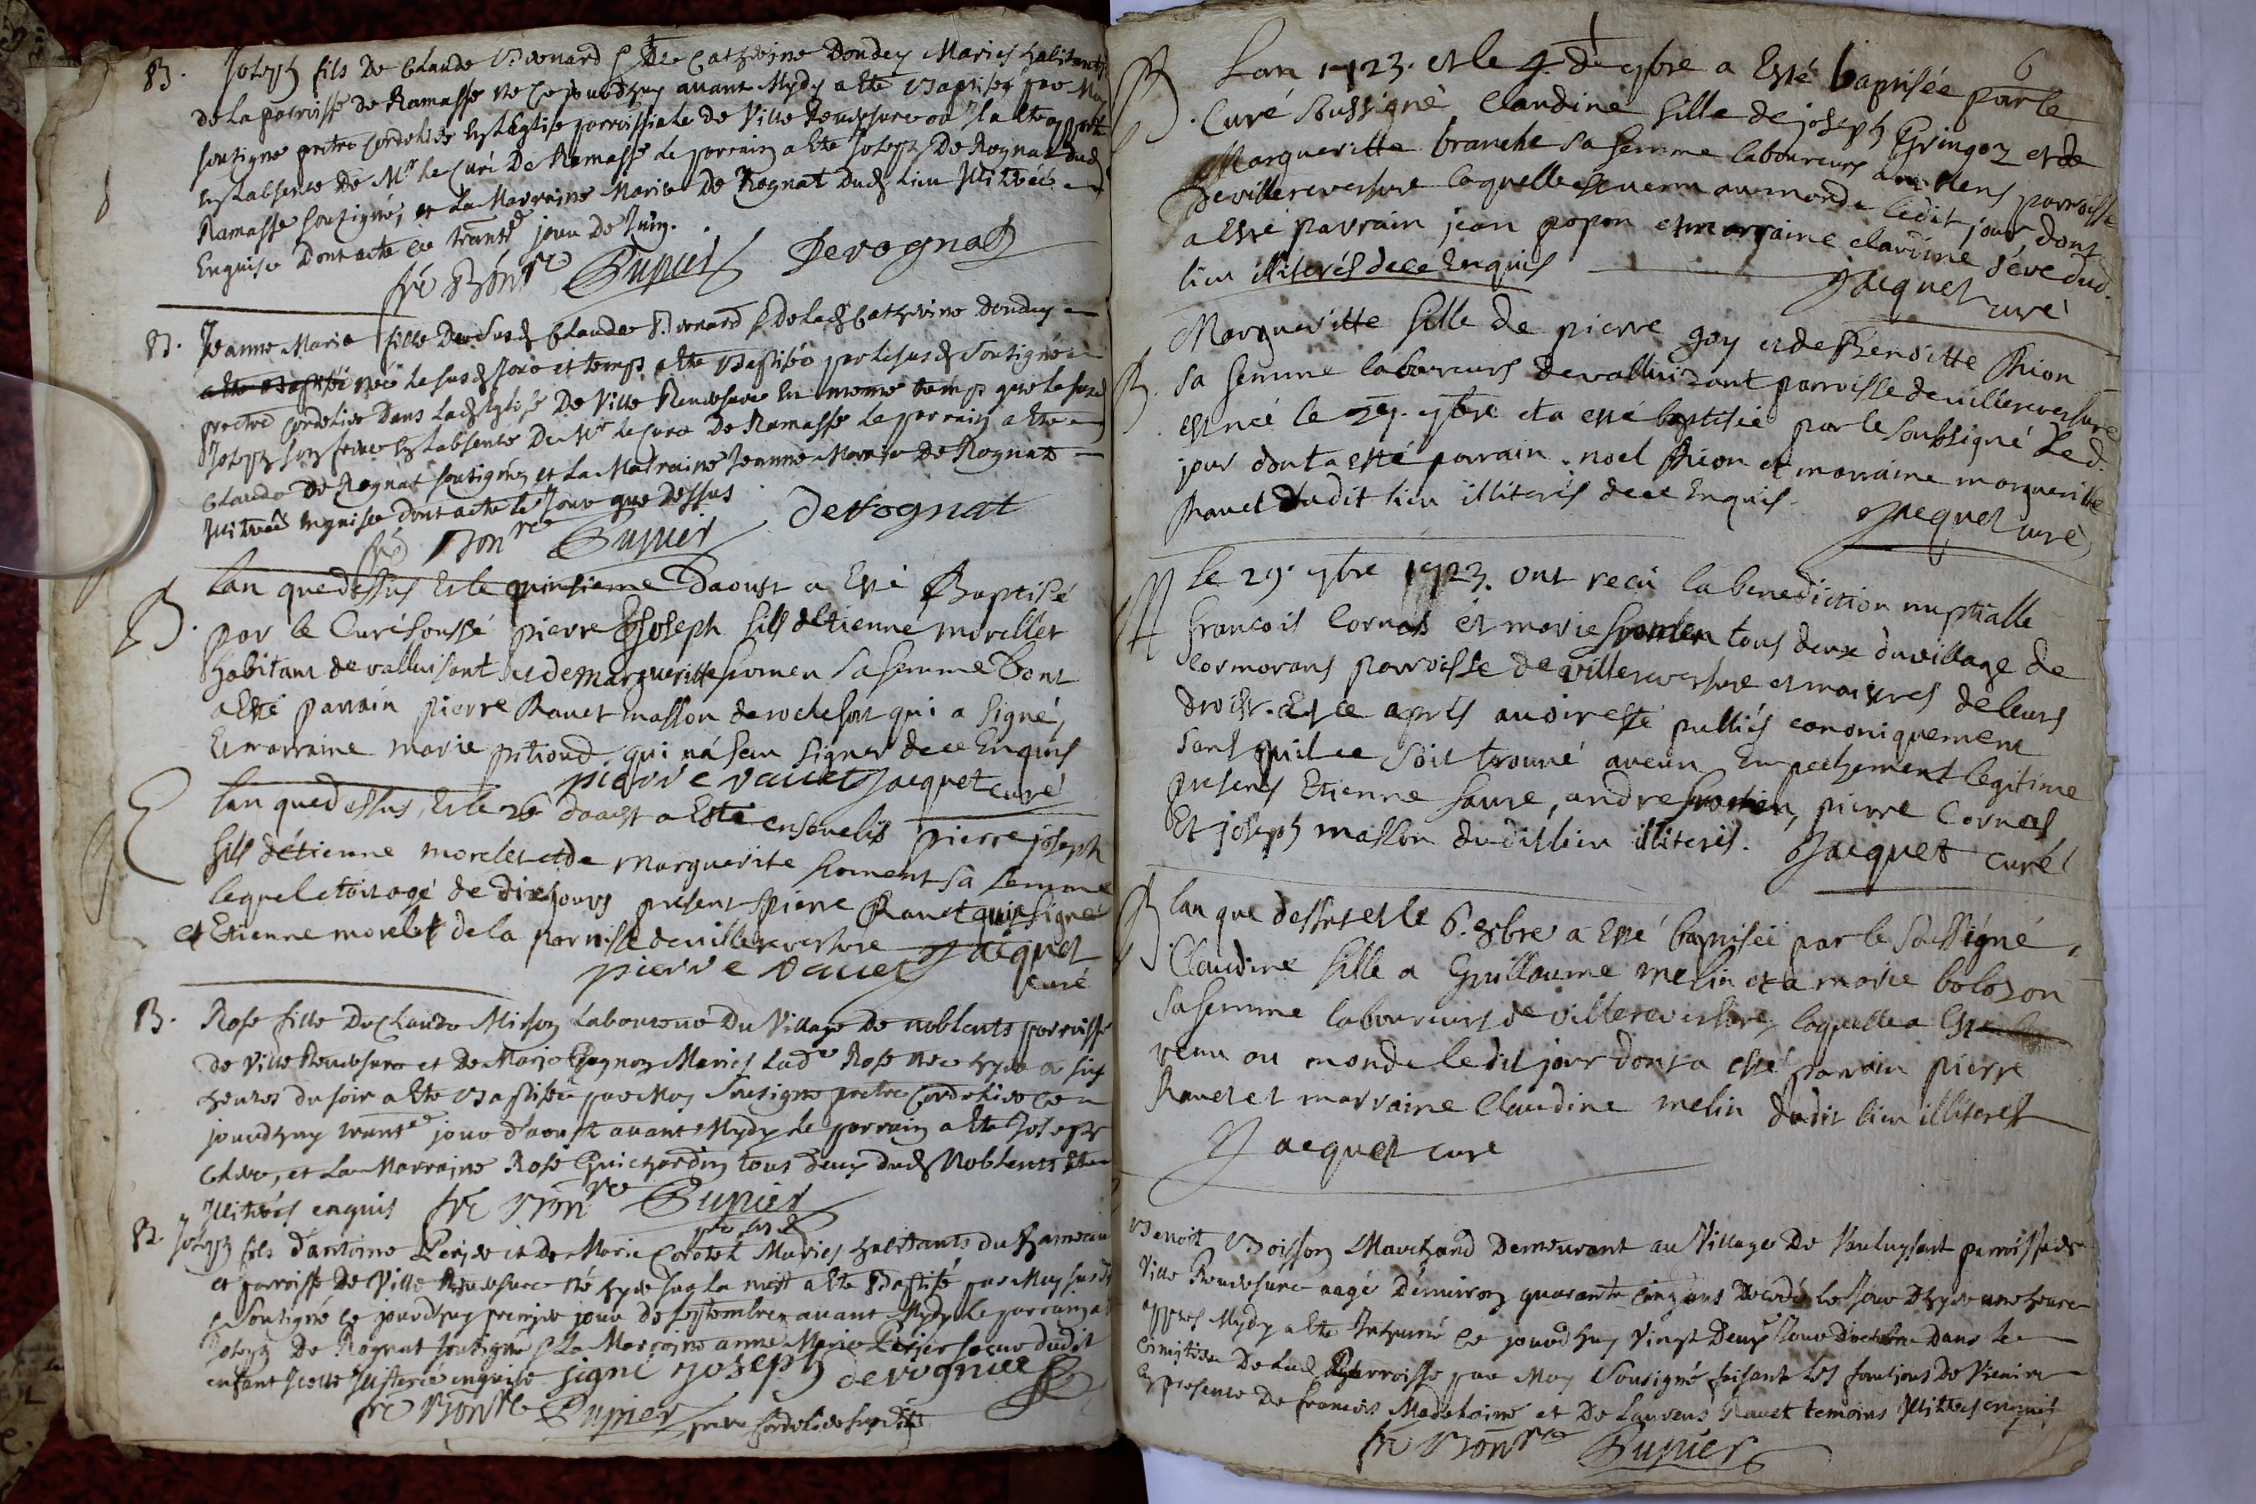 B. Joseph fils De Claude Bevenard & De Catherine Dondey Mariés habitants
de La parroisse de Ramasse né Ce jourdhuy avant Mydy a Ete Baptisé par Moy
soussigné pretre Cordelier En LEglise parroissiale de Ville Reuversure ou Il a Ete apporté
En Labsence De Mr Le Curé De Ramasse Le parrain a Ete Joseph De Rognat dud
Ramasse Soussigné, et La Marraine Marie De Rognat Dud Lieu Illitrée
Enquise Dont acte Ce trante jour De Juin.
fré Bonre Pupier Derognat
B. Jeanne Marie fille Dudusd Claude Bevenard & De Lad Catherine Dondey
a Ete Baptisée née Le susd Jour et temps a Ete Baptisée par Le susd Soussigné
pretre Cordelier Dans Lad Eglise De Ville Reuversure En meme temps que Le susd
Joseph Son frere En Labsence De Mr Le Curé De Ramasse Le parrain a Ete
Claude De Rognat Soussigné, et La Marraine Jeanne Marie De Rognat
Illitrée Enquise dont acte Le Jour que Dessus
fré Bonre Pupier Derognat
B. Lan que dessus Et le quinsieme Daoust a Esté Baptisé
par le Curé soussé pierre Joseph fils dEtienne morellet
habitant de valluisant et de Margueritte fromen sa femme Dont
a Esté parrain pierre Ravet masson de rochefort qui a signé,
Et marraine marie pitioud qui na sceu signer de ce Enquis
pierre ravet Jacquet curé
E Lan que dessus, Et le 26 daoust a Esté ensevelis pierre joseph
fils détienne morelet et de Marguerite froment sa femme
lequel étoit agé de dix jours present pierre Ravet qui a signé
et Etienne morelet de la parroisse de villereversure Jacquet
pierre ravet curé
B. Rose fille De Claude Mison Laboureur Du Village De noblents parroisse
de Ville Reuversure et De Marie Mariés Lade Rose née hyer a six
heures du soir a Ete Baptisée par Moy Soussigné pretre Cordelier Ce
jourdhuy trante jour d'aoust avant Mydy Le parrain a Ete Joseph
et La Marraine Rose Guichardin tous deux dud Noblents Et
Illitrés enquis fré Bonre Pupier
B. Joseph fils d'antoine et De Marie Corotet Mariés habitants du hameau
et parroisse De Ville Reuversure né hyer sur La nuit a Ete Baptisé par Moy susdt
& Soussigné Ce jourdhuy premier jour de septembre avant Mydy Le parrain a
Joseph De Rognat soussigné & La Marraine anne Marie soeur dudit
enfant Icelle Illiterée enquise signé Joseph derognat
fré Bonre Pupier pretre Cordelier susdit
6
B. Lan 1723. et le 4. de 7bre a Esté baptisée par le
Curé Soussigné Claudine fille de joseph Gringoz et de
Margueritte branche sa femme laboureurs parroisse
De villereversure laquelle est venu au monde ledit jour, dont
a Esté parrain jean popon et marraine claudine seve dud.
lieu illiterés de ce Enquis
Jacquet curé
B. Margueritte fille de pierre goy et de Benoitte Rion
sa femme laboureurs de valluisant parroisse de villereversure
est née le 7bre et a esté baptisée par le soubsigné led.
jour dont a esté parrain noel Rion et marraine margueritte
Ravet dudit lieu illiterés de ce Enquis.
Jacquet curé
M Le 29. 7bre 1723. ont recu la benediction nuptialle
francois Cornas et marie fromen tous deux du village de
Cormorans parroisse de villereversure et maitres de leurs
droits. Et ce aprés avoir esté publiés cononiquement
sans quil ce soit trouvé aucun Empechement legitime
presens Etienne faure, andré fromen, pierre Cornas
Et joseph masson dudit lieu illiterés. Jacquet curé
B. Lan que dessus et le 6. 8bre a Esté baptisée par le Soussigné
Claudine fille a Guillaume melin et a marie bolozon
sa femme laboureurs de villereversure, laquelle a Esté
venu au monde le dit jour dont a esté parrain pierre
Ravet et marraine Claudine melin dudit lieu illiterés
Jacquet curé
Benoit Boisson Marchand Demeurant au Village De Vauluysant parroisse de
Ville Reuversure aagé D'environ quarante Cinq ans Decedé Le Jour D'hyer une heure
appres Mydy a Ete Inhumé Ce jourdhuy Vingt Deux Jour Doctobre Dans Le
Cimitiere De Lad Parroisse par Moy Sousigné faisant Les fonctions de Vicaire
En presence De francois Madelaine et De Laurens Ravet temoins Illitrés enquis
fré Bonre Pupier